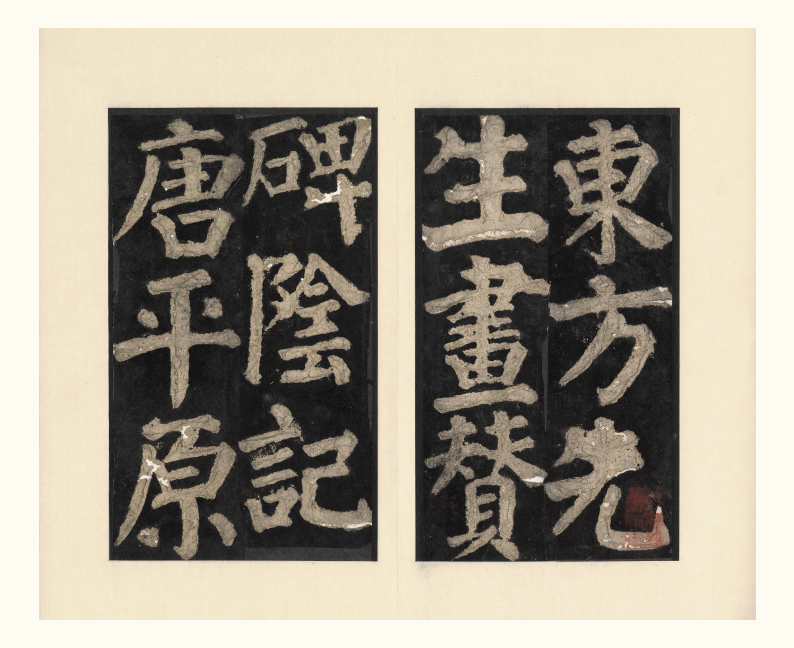 東方先
生畫贊
碑陰記
唐平原